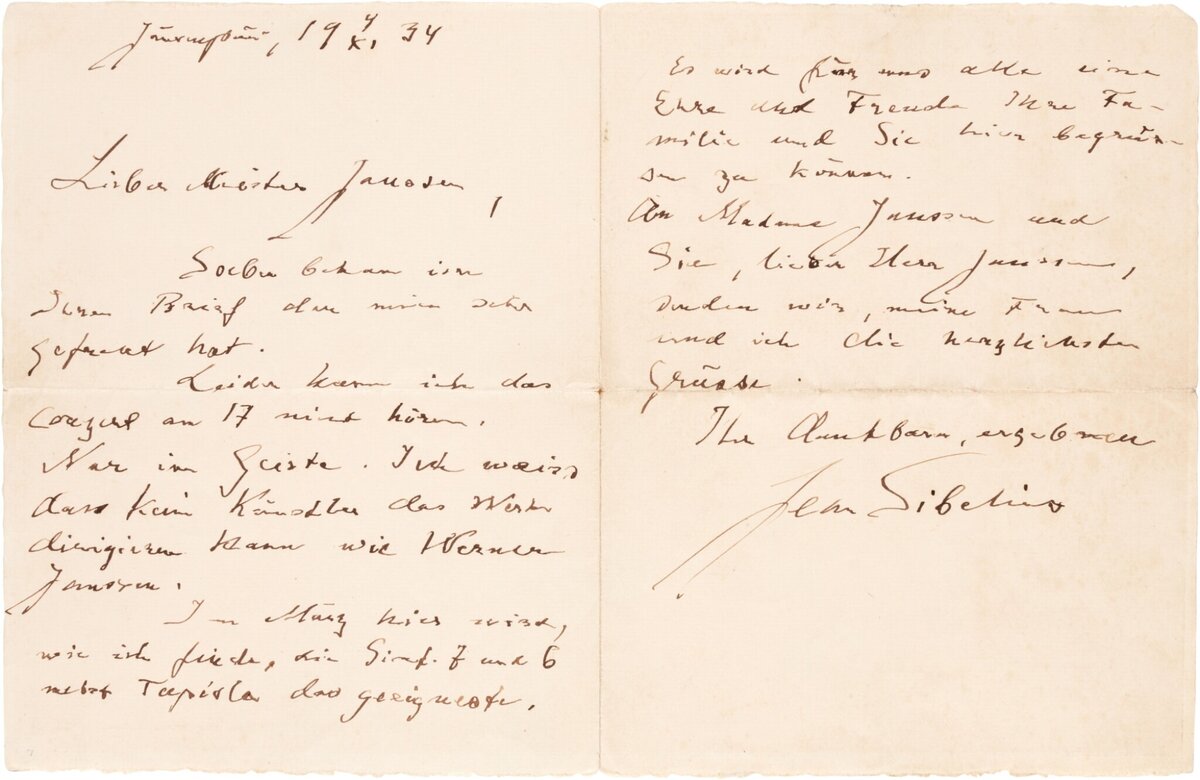 Järvenpää, 19 4/XI 34
Lieber Meister Janssen,
Soeben bekam ich
Ihren Brief der mich sehr
gefreut hat.
Leider kann ich das
Conzert am 17 nicht hören.
Nur im Geiste. Ich weiss
dass kein Künstler das Werk
dirigieren kann wie Werner
Janssen.
Im März hier wird,
wie ich finde, die Sinf. 7 und 6
nebst Tapiola das geeignete.
Es wird für uns alle eine
Ehre und Freude Ihre Fa-
milie und Sie hier begrüs-
sen zu können.
An Madame Janssen und
Sie, lieber Herr Janssen,
senden wir, meine Frau
und ich die herzlichsten
Grüsse.
Ihr dankbarer, ergebener
Jean Sibelius